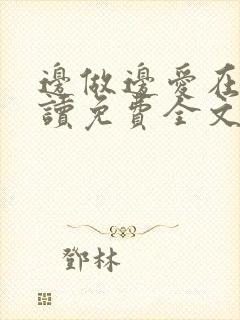 邊做邊愛在
讀免費全文
鄧林